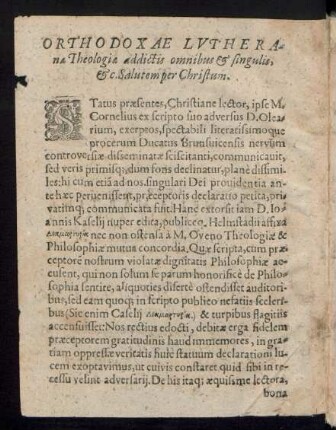 ORTHODOXAE LVTHERA-
næ Theologiæ addictis omnibus & singulis,
&c. Salutem per Christum.
STatus præsentes, Christiane lector, ipse M.
Cornelius ex scripto suo adversus D. Olea-
rium, exerpsos, spectabili literatissimoque
procerum Ducatus Brunsuicensis nervum
controversiæ disseminatæ sciscitanti, communicauit,
sed veris primisq; dum fons declinatur, planè dissimi-
les: hi cum etiã ad nos, singulari Dei prouidentia an-
te hæc peruenissent, præceptoris declaratio petita, pri-
vatimq; communicata fuit. Hanc extorsit iam D. Io-
annis Kaselij nuper edita, publiceq; Helmstadij affixa
nec non ostensa à M. Oveno Theologiæ &
Philosophiæ mutua concordia, Quæ scripta, cum præ-
ceptorẽ nostrum violatæ dignitatis Philosophiæ ac-
cusent, qui non solum se parum honorificè de Philo-
sophia sentire, aliquoties disertè ostendisset auditori-
bus, sed eam quoq; in scripto publico nefatiis sceleri-
bus (Sic enim Caselij) & turpibus flagitiis
accensuisset: Nos rectius edocti, debitæ erga fidelem
præceptorem gratitudinis haud immemores, in gra-
tiam oppressæ veritatis huic statuum declarationi lu-
cem exoptavimus, ut cuivis constaret quid sibi in re-
cessu velint adversarij. De his itaq; æquissime lectora,
bona